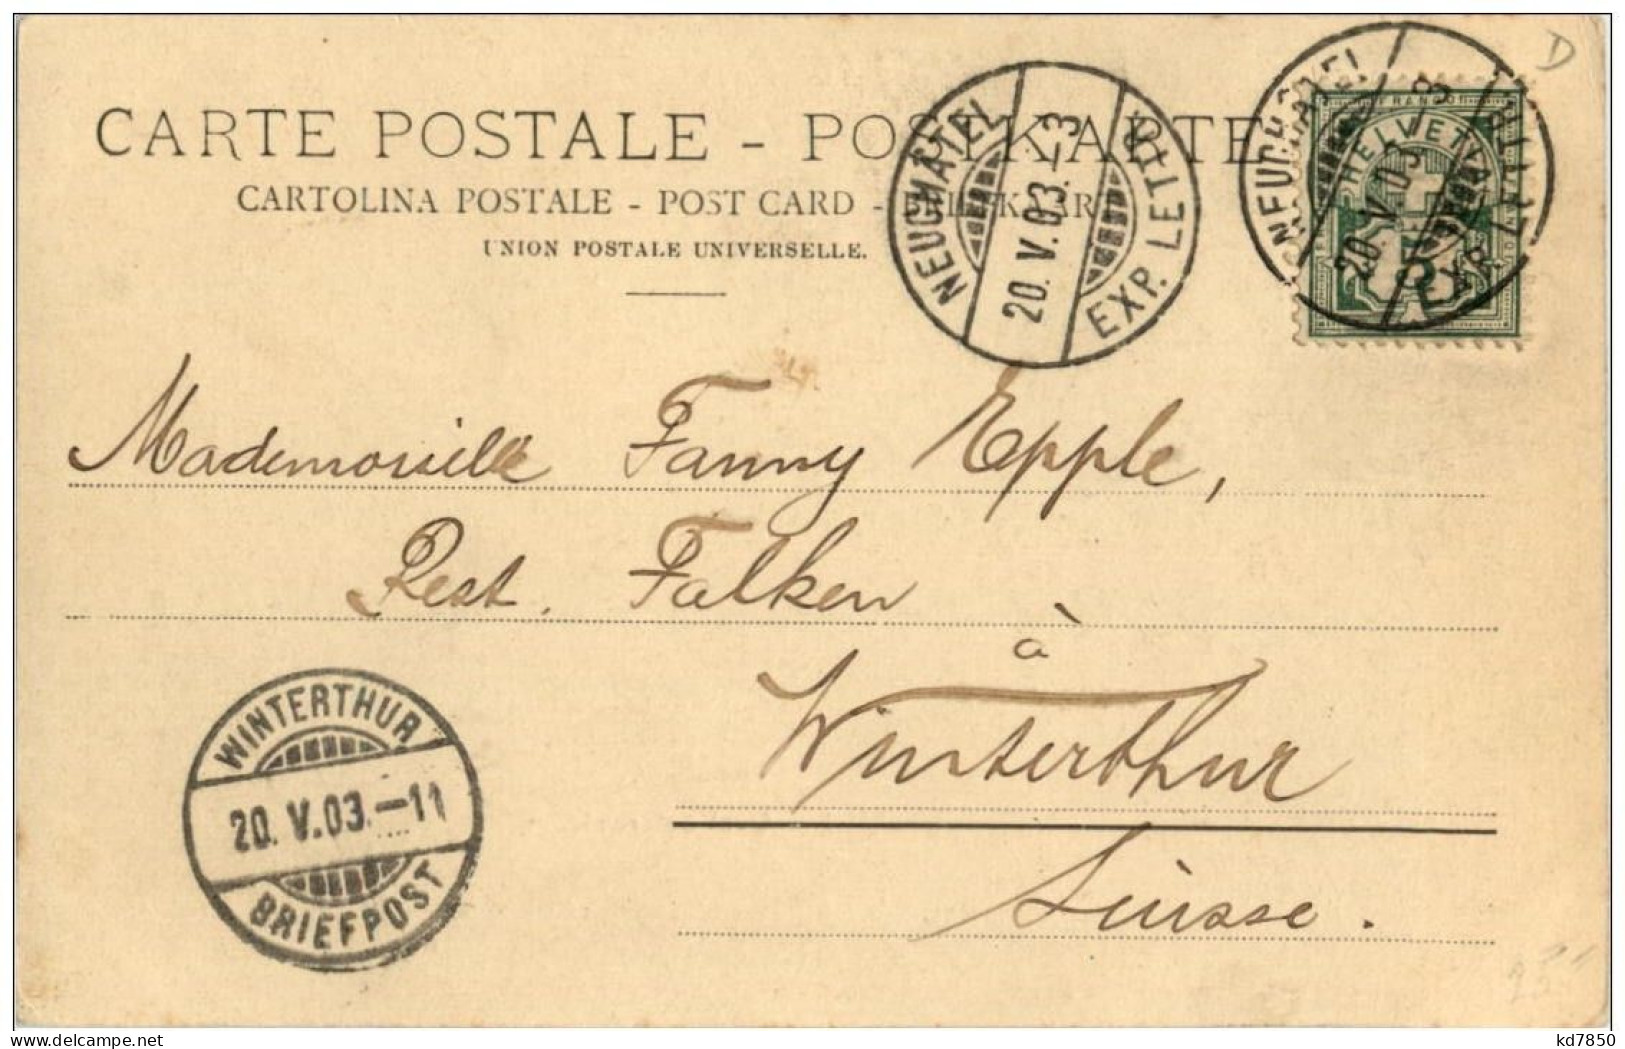 CARTE POSTALE - POSTKARTE
CARTOLINA POSTALE - POST CARD -
UNION POSTALE UNIVERSELLE.
NEUCHÂTEL
20.V.03.-3
EXP. LETTR.
NEUCHÂTEL
20.V.03.
EXP. LETTR.
FRANCO
HELVETIA
5
D
Mademoiselle Fanny Epple,
Rest. Falken
à
Winterthur
Suisse.
WINTERTHUR
20.V.03.-11
BRIEFPOST
delcampe.net
kd7850